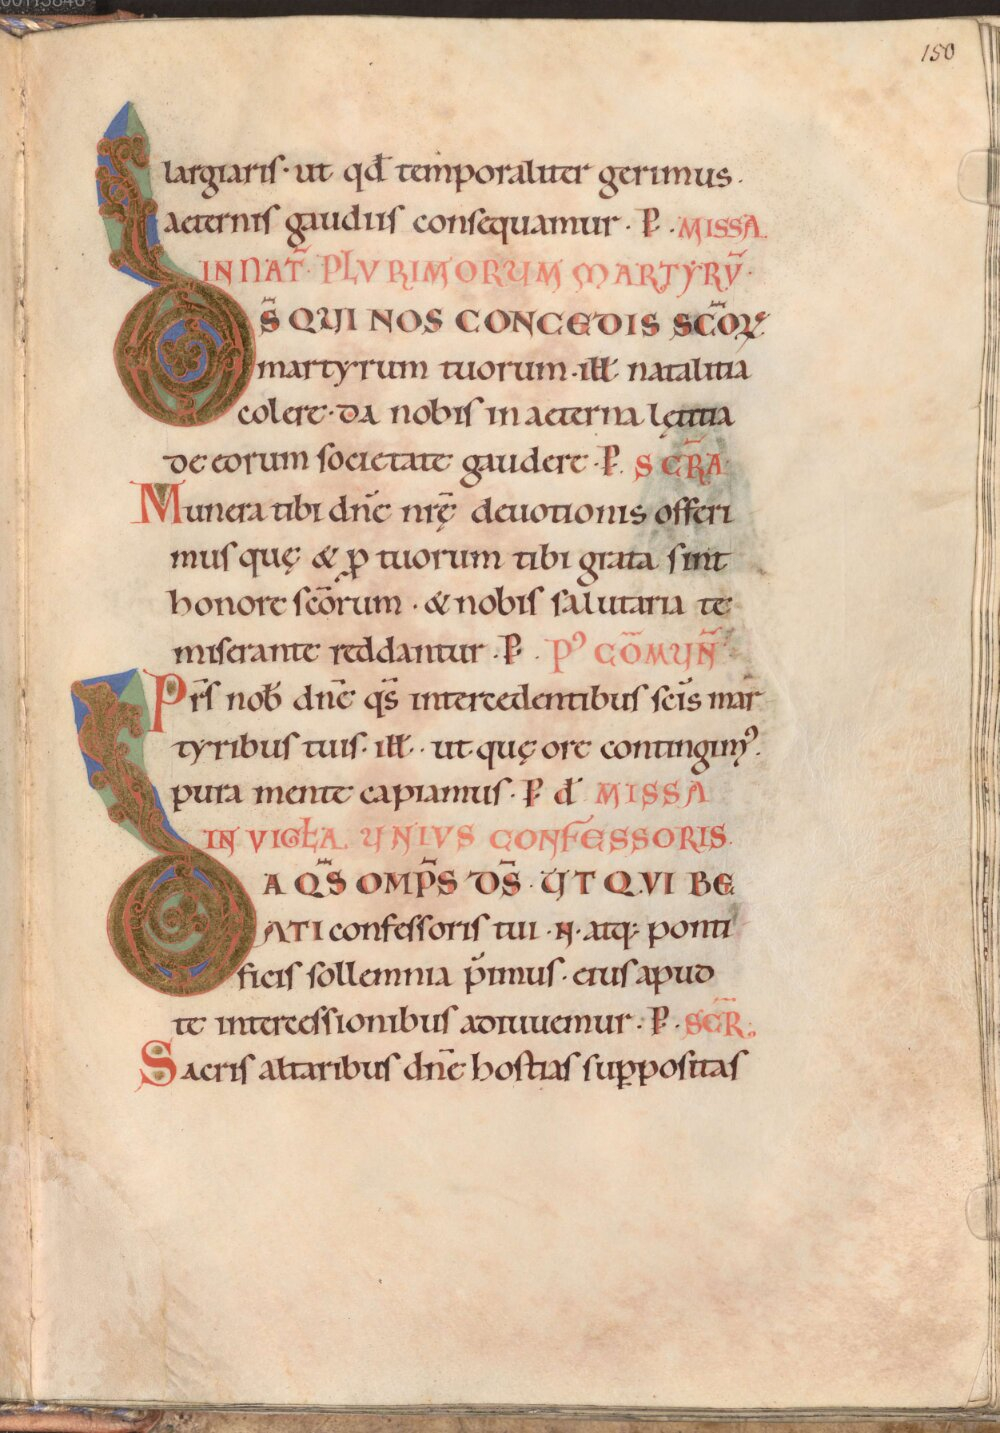 150
largiaris · ut qđ temporaliter gerimus.
aeternis gaudiis consequamur · P · MISSA
IN NAT̄ · PLVRIMORUM MARTYRŪ ·
D S̄ QUI NOS CONCEDIS SC̄OꝜ
martyrum tuorum · ill̄ · natalitia
colere · da nobis in aeterna lętitia
de eorum societate gaudere · P · SECR̄A
Munera tibi dn̄e nr̄ę deuotionis offeri
mus quę & p̱ tuorum tibi grata sint
honore sc̄orum · & nobis salutaria te
miserante reddantur · P · Pꝰ CŌMUÑ
Prs̄ nob̄ dn̄e qs̄ intercedentibus sc̄is mar
tyribus tuis · ill̄ · ut quę ore contingimꝰ.
pura mente capiamus · P · đ MISSA
IN VIGŁA · UNIVS CONFESSORIS.
D A QS̄ OMP̄S DS̄ · UT QVI BE
ATI confessoris tui · N · atq: ponti
ficis sollemnia p̄imus · eius apud
te intercessionibus adiuuemur · P · SECR̄.
Sacris altaribus dn̄e hostias suppositas